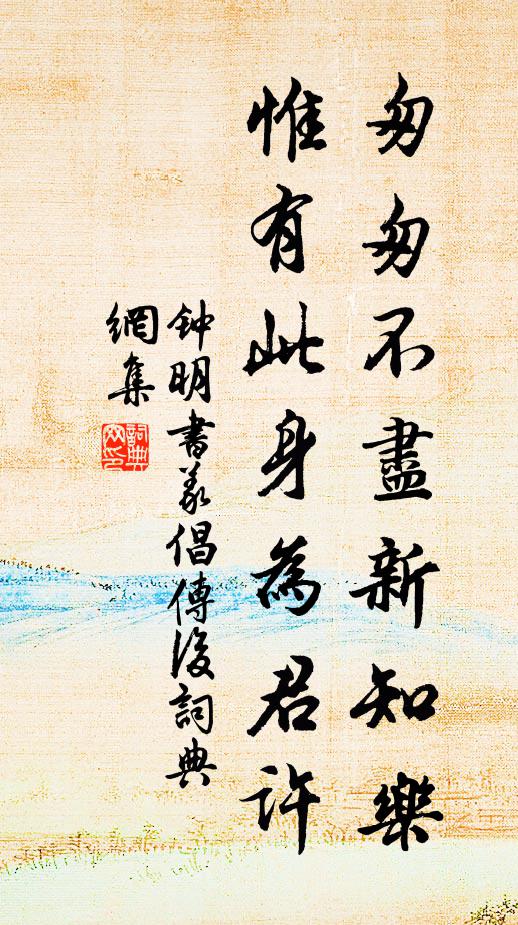 匆匆不盡新知樂
惟有此身為君許
钟明書義倡傳後詞典
網集
詞典